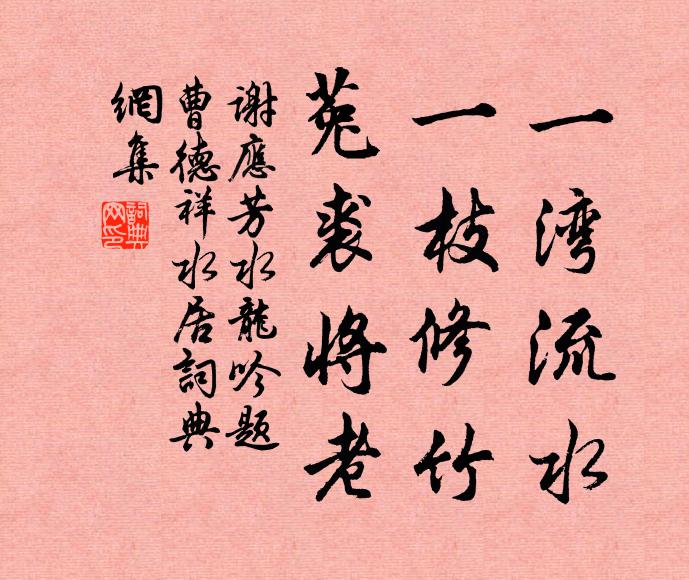 一湾流水
一枝修竹
菟裘将老
谢應芳水龍吟题
曹德祥水居詞典
網集
詞典
网印